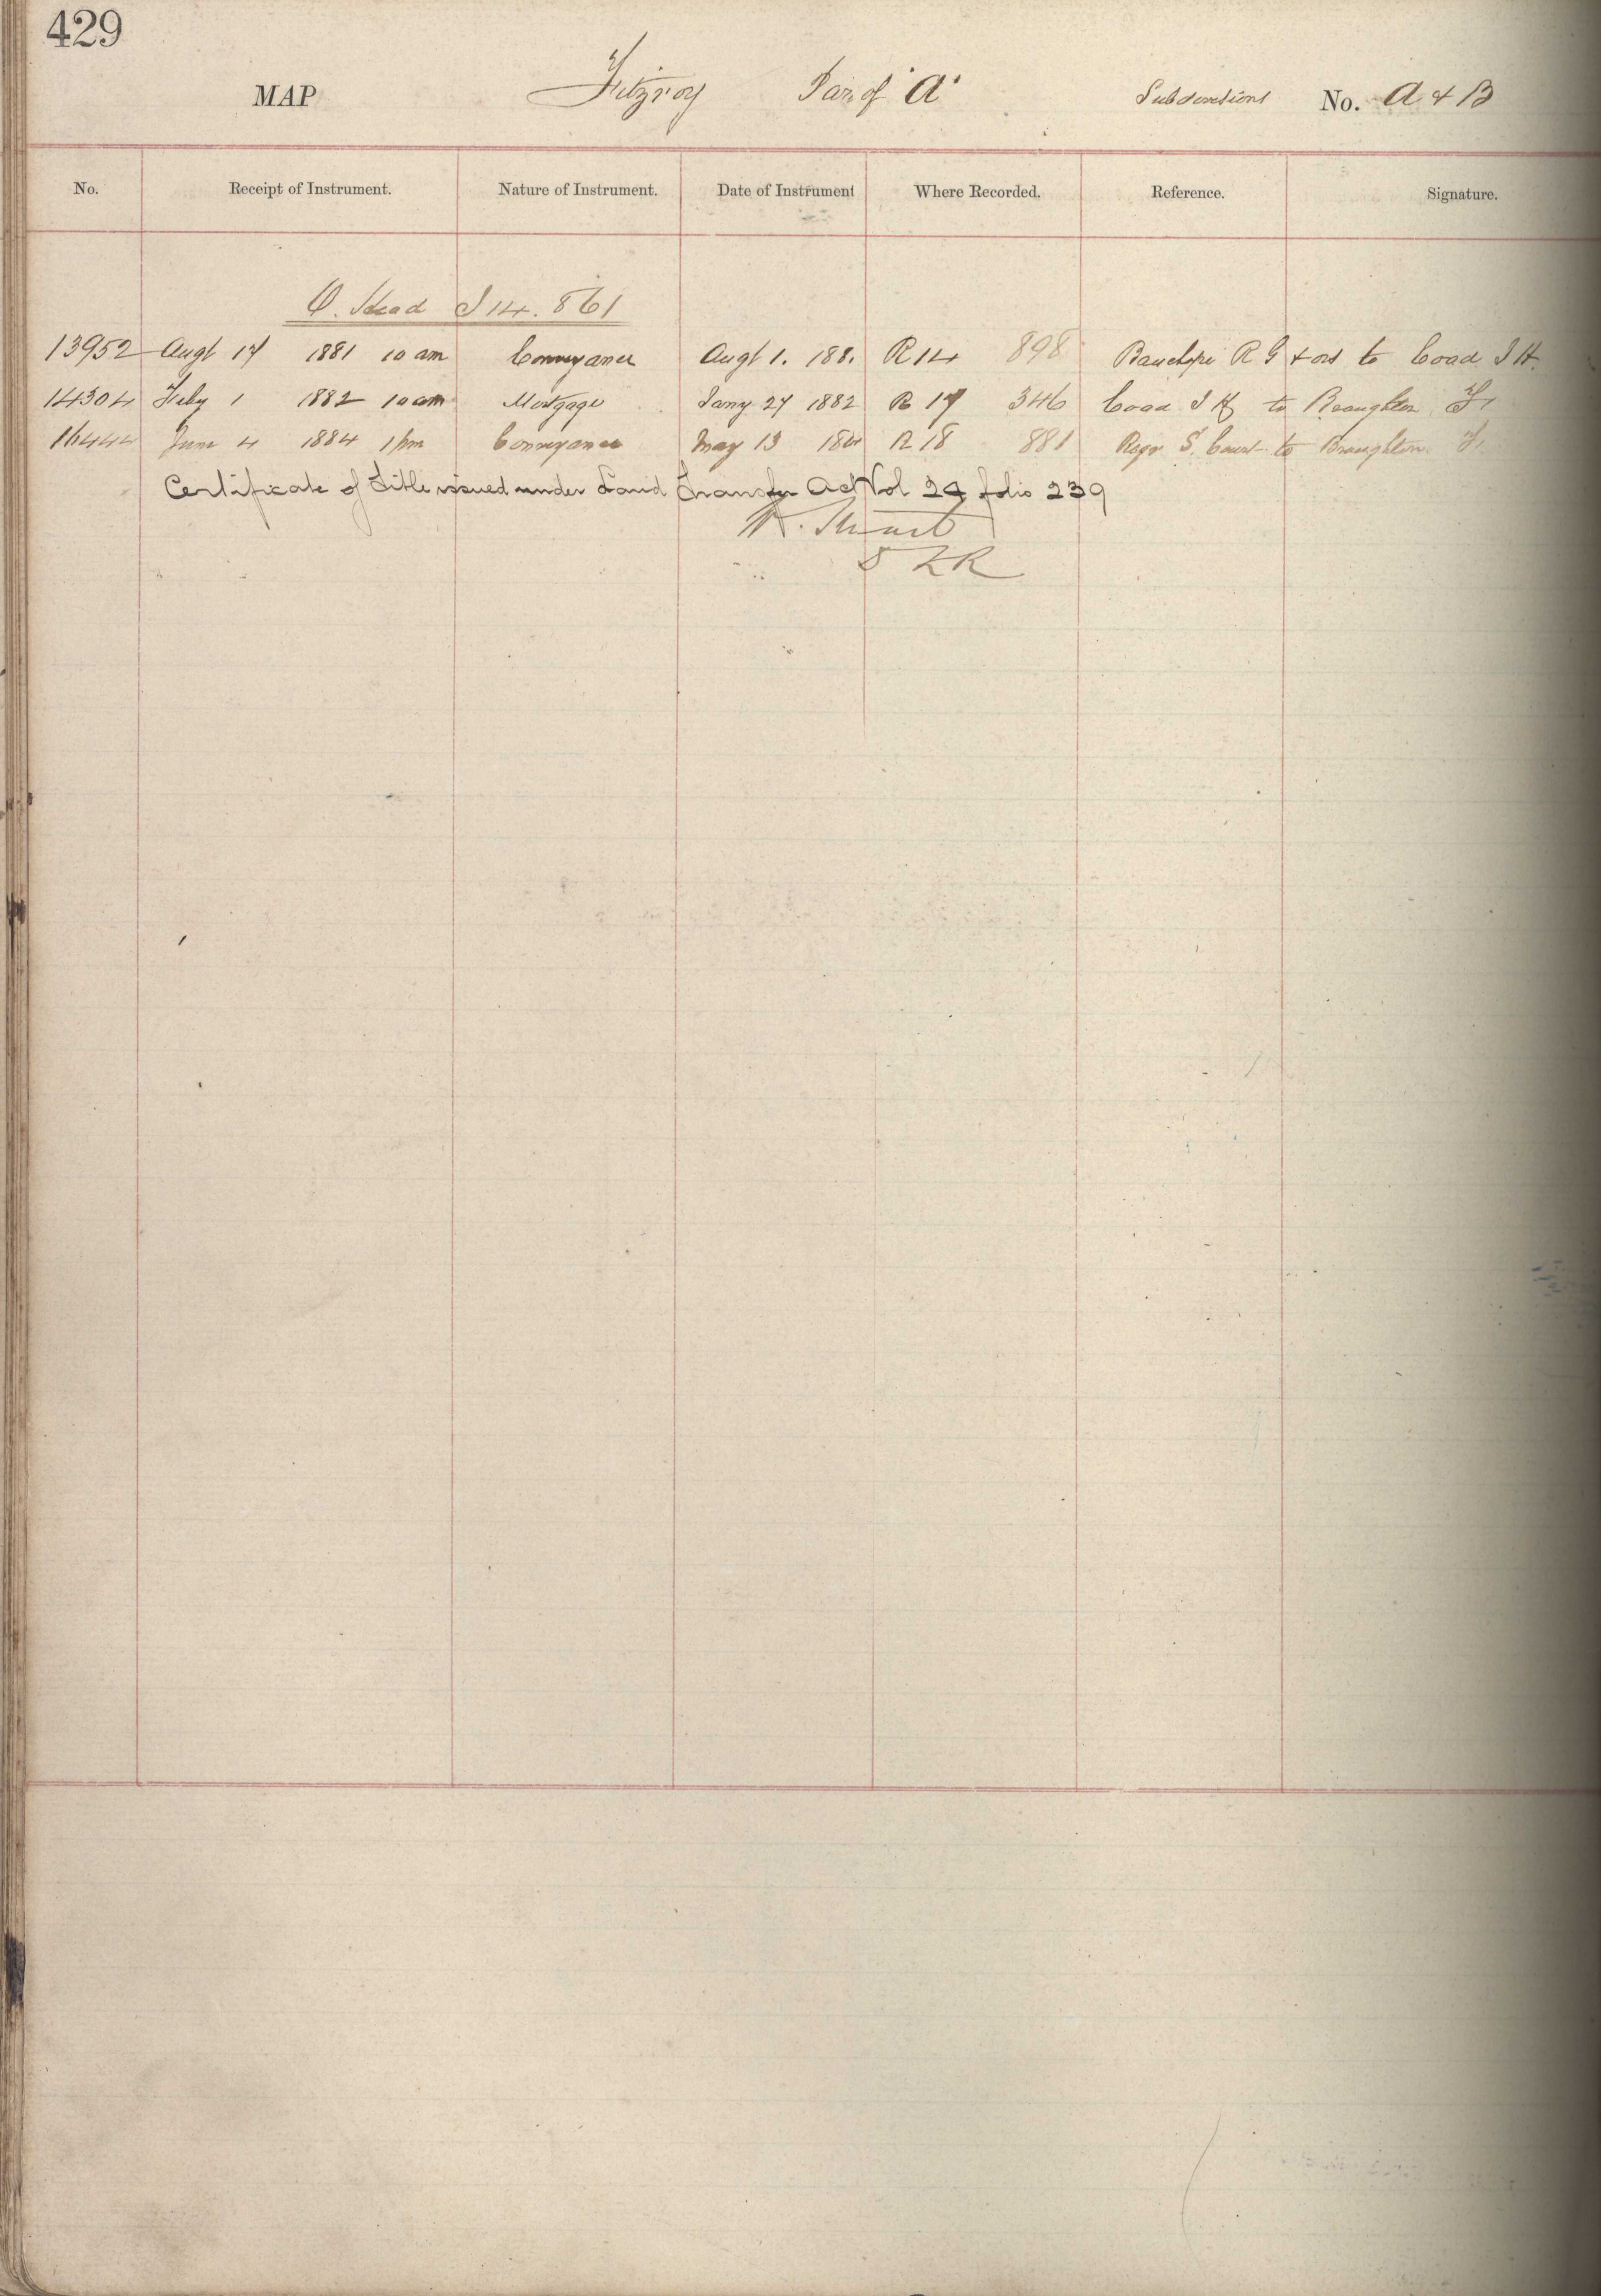 429
MAP Fitzroy Par. of "A" Subdivisions No. A & B
No. Receipt of Instrument. Nature of Instrument. Date of Instrument Where Recorded. Reference. Signature.
Head 14. 861
13952 Augt 17 1881 10 am Conveyance Augt 1. 188. R 14 898 R G & ors to Coad J H.
14304 Feby 1 1882 10 am Mortgage Jany 27 1882 R 17 346 Coad J H to Broughton F.
16444 June 4 1884 1 pm Conveyance May 13 R 18 881 Regr S. Court to Broughton F.
Certificate of Title issued under Land Transfer Act Vol 24 folio 239
Stuart